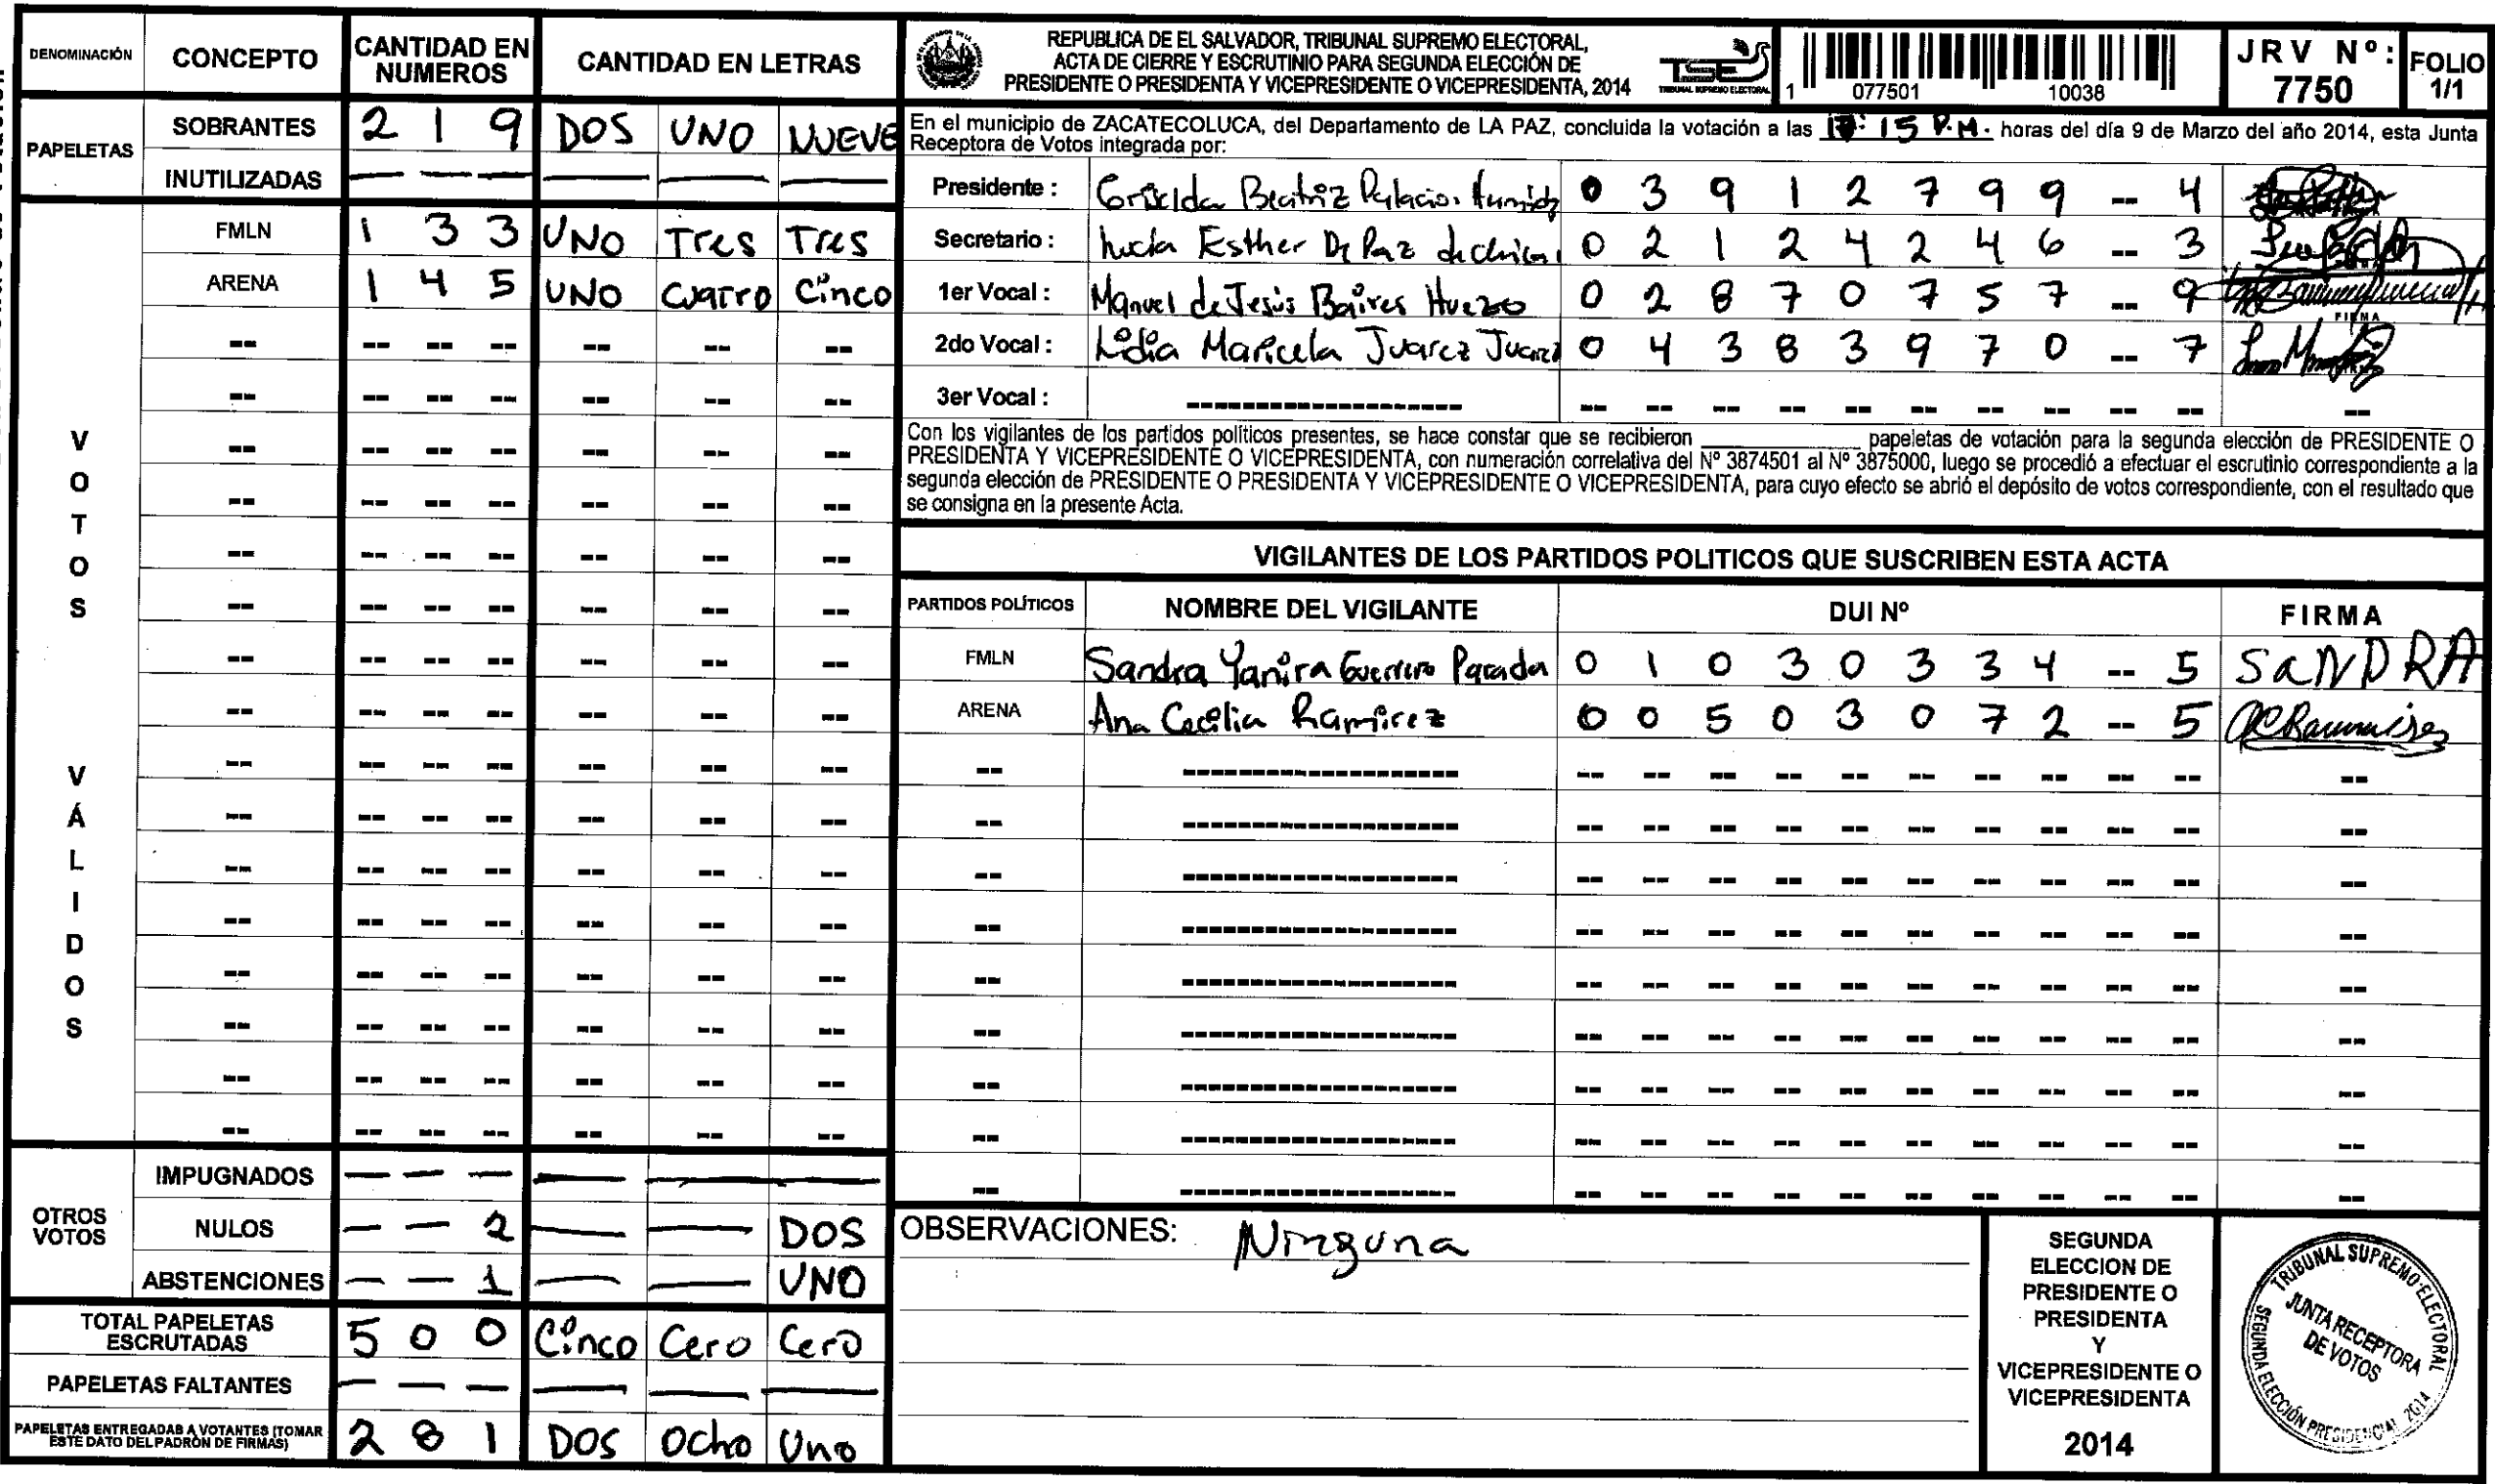 DENOMINACIÓN CONCEPTO CANTIDAD EN NUMEROS CANTIDAD EN LETRAS
PAPELETAS
SOBRANTES 2 1 9 DOS UNO NUEVE
INUTILIZADAS — — — — — —
VOTOS VÁLIDOS
FMLN 1 3 3 UNO Tres Tres
ARENA 1 4 5 UNO Cuatro Cinco
OTROS VOTOS
IMPUGNADOS — — — — — —
NULOS — — 2 — — DOS
ABSTENCIONES — — 1 — — UNO
TOTAL PAPELETAS ESCRUTADAS 5 0 0 Cinco Cero Cero
PAPELETAS FALTANTES — — — — — —
PAPELETAS ENTREGADAS A VOTANTES (TOMAR ESTE DATO DEL PADRÓN DE FIRMAS) 2 8 1 DOS Ocho Uno
REPUBLICA DE EL SALVADOR, TRIBUNAL SUPREMO ELECTORAL,
ACTA DE CIERRE Y ESCRUTINIO PARA SEGUNDA ELECCIÓN DE
PRESIDENTE O PRESIDENTA Y VICEPRESIDENTE O VICEPRESIDENTA, 2014
TSE
TRIBUNAL SUPREMO ELECTORAL
1 077501 10038
JRV Nº: 7750
FOLIO 1/1
En el municipio de ZACATECOLUCA, del Departamento de LA PAZ, concluida la votación a las 15 P.M. horas del día 9 de Marzo del año 2014, esta Junta
Receptora de Votos integrada por:
Presidente : Beatriz 0 3 9 1 2 7 9 9 -- 4
Secretario : Esther De Paz 0 2 1 2 4 2 4 6 -- 3
1er Vocal : Manuel de Jesús Baires Huezo 0 2 8 7 0 7 5 7 -- 9
FIRMA
2do Vocal : Lidia Maricela Juarez Juarez 0 4 3 8 3 9 7 0 -- 7
3er Vocal : -- -- -- -- -- -- -- -- -- -- --
Con los vigilantes de los partidos políticos presentes, se hace constar que se recibieron ____________ papeletas de votación para la segunda elección de PRESIDENTE O
PRESIDENTA Y VICEPRESIDENTE O VICEPRESIDENTA, con numeración correlativa del Nº 3874501 al Nº 3875000, luego se procedió a efectuar el escrutinio correspondiente a la
segunda elección de PRESIDENTE O PRESIDENTA Y VICEPRESIDENTE O VICEPRESIDENTA, para cuyo efecto se abrió el depósito de votos correspondiente, con el resultado que
se consigna en la presente Acta.
VIGILANTES DE LOS PARTIDOS POLITICOS QUE SUSCRIBEN ESTA ACTA
PARTIDOS POLÍTICOS NOMBRE DEL VIGILANTE DUI Nº FIRMA
FMLN Sandra Yanira Guerrero Parada 0 1 0 3 0 3 3 4 -- 5 SANDRA
ARENA Ana Cecilia Ramirez 0 0 5 0 3 0 7 2 -- 5
OBSERVACIONES: Ninguna
SEGUNDA
ELECCION DE
PRESIDENTE O
PRESIDENTA
Y
VICEPRESIDENTE O
VICEPRESIDENTA
2014
TRIBUNAL SUPREMO ELECTORAL
JUNTA RECEPTORA
DE VOTOS
SEGUNDA ELECCIÓN PRESIDENCIAL 2014